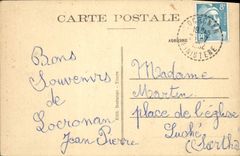 CARTE POSTALE
ADRESSE
FINISTERE
Bons
Souvenirs
de
Locronan
Jean Pierre
Madame
Martin
place de l'église
Luché
(Sarthe)